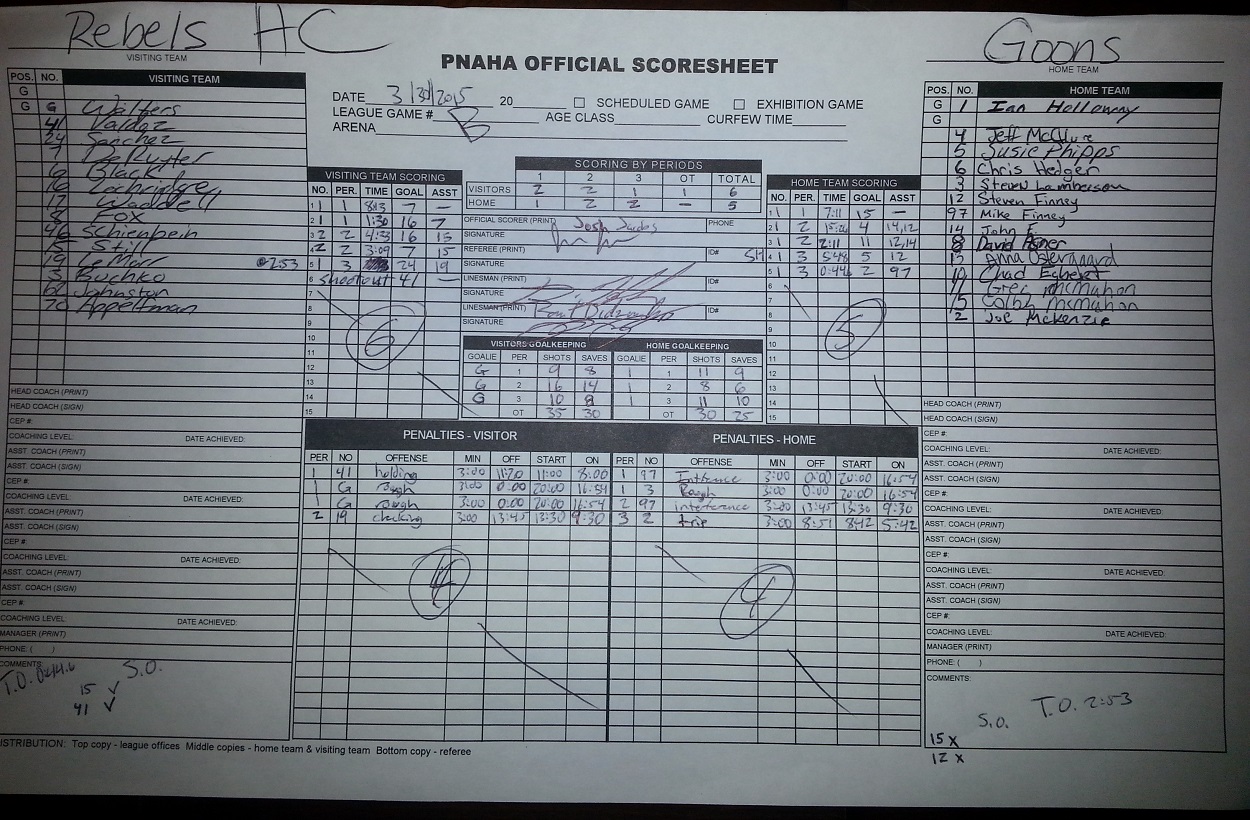 Rebels HC
VISITING TEAM
Goons
HOME TEAM
PNAHA OFFICIAL SCORESHEET
DATE 3/30/2015 20 SCHEDULED GAME EXHIBITION GAME
LEAGUE GAME # B AGE CLASS CURFEW TIME
ARENA
POS. NO. VISITING TEAM
G
G G Walters
41 Valdez
24 Sanchez
7 DeRuyter
Black
16 Lochridge
17 Waddell
8 Fox
96 Schienbein
15 Still
19 LeMarr
3 Buchko
62 Johnston
70 Appeltman
HEAD COACH (PRINT)
HEAD COACH (SIGN)
CEP #:
COACHING LEVEL: DATE ACHIEVED:
ASST. COACH (PRINT)
ASST. COACH (SIGN)
CEP #:
COACHING LEVEL: DATE ACHIEVED:
ASST. COACH (PRINT)
ASST. COACH (SIGN)
CEP #:
COACHING LEVEL: DATE ACHIEVED:
ASST. COACH (PRINT)
ASST. COACH (SIGN)
CEP #:
COACHING LEVEL: DATE ACHIEVED:
MANAGER (PRINT)
PHONE: ( )
COMMENTS:
T.O. 0:44.6 S.O.
15 ✓
41 ✓
VISITING TEAM SCORING
NO. PER. TIME GOAL ASST
1 1 8:13 7 —
2 1 1:30 16 7
3 2 4:33 16 15
4 2 3:09 7 15
@2:53 5 3 24 19
6 Shootout 41 —
7
8
9
10
11
12
13
14
15
6
SCORING BY PERIODS
1 2 3 OT TOTAL
VISITORS 2 2 1 1 6
HOME 1 2 2 — 5
OFFICIAL SCORER (PRINT) Josh PHONE
SIGNATURE
REFEREE (PRINT) ID#
SIGNATURE
LINESMAN (PRINT) ID#
SIGNATURE
LINESMAN (PRINT) ID#
SIGNATURE
VISITORS GOALKEEPING HOME GOALKEEPING
GOALIE PER SHOTS SAVES GOALIE PER SHOTS SAVES
G 1 9 8 1 1 11 9
G 2 16 14 1 2 8 6
G 3 10 8 1 3 11 10
OT 35 30 OT 30 25
HOME TEAM SCORING
NO. PER. TIME GOAL ASST
1 1 7:11 15 —
2 2 15:26 4 14,12
3 2 2:11 11 12,14
4 3 5:48 5 12
5 3 0:44.6 2 97
6
7
8
9
10
11
12
13
14
15
5
POS. NO. HOME TEAM
G 1 Ian Holloway
G
4 Jeff McClure
5 Susie Phipps
6 Chris Hedger
3 Steven Lamberson
12 Steven Finney
97 Mike Finney
14 John F.
8 David
13 Anna
10 Chad Egbert
11 Greg McMahon
15 Colby McMahon
2 Joe McKenzie
HEAD COACH (PRINT)
HEAD COACH (SIGN)
CEP #:
COACHING LEVEL: DATE ACHIEVED:
ASST. COACH (PRINT)
ASST. COACH (SIGN)
CEP #:
COACHING LEVEL: DATE ACHIEVED:
ASST. COACH (PRINT)
ASST. COACH (SIGN)
CEP #:
COACHING LEVEL: DATE ACHIEVED:
ASST. COACH (PRINT)
ASST. COACH (SIGN)
CEP #:
COACHING LEVEL: DATE ACHIEVED:
MANAGER (PRINT)
PHONE: ( )
COMMENTS:
S.O. T.O. 2:53
15 x
12 x
PENALTIES - VISITOR PENALTIES - HOME
PER NO OFFENSE MIN OFF START ON PER NO OFFENSE MIN OFF START ON
1 41 holding 3:00 11:20 11:00 8:00 1 97 3:00 0:00 20:00 16:54
1 G rough 3:00 0:00 20:00 16:54 1 3 Rough 3:00 0:00 20:00 16:54
1 G rough 3:00 0:00 20:00 16:54 2 97 interference 3:00 13:45 13:30 9:30
2 19 checking 3:00 13:45 13:30 9:30 3 2 trip 3:00 8:51 8:42 5:42
4
4
ISTRIBUTION: Top copy - league offices Middle copies - home team & visiting team Bottom copy - referee